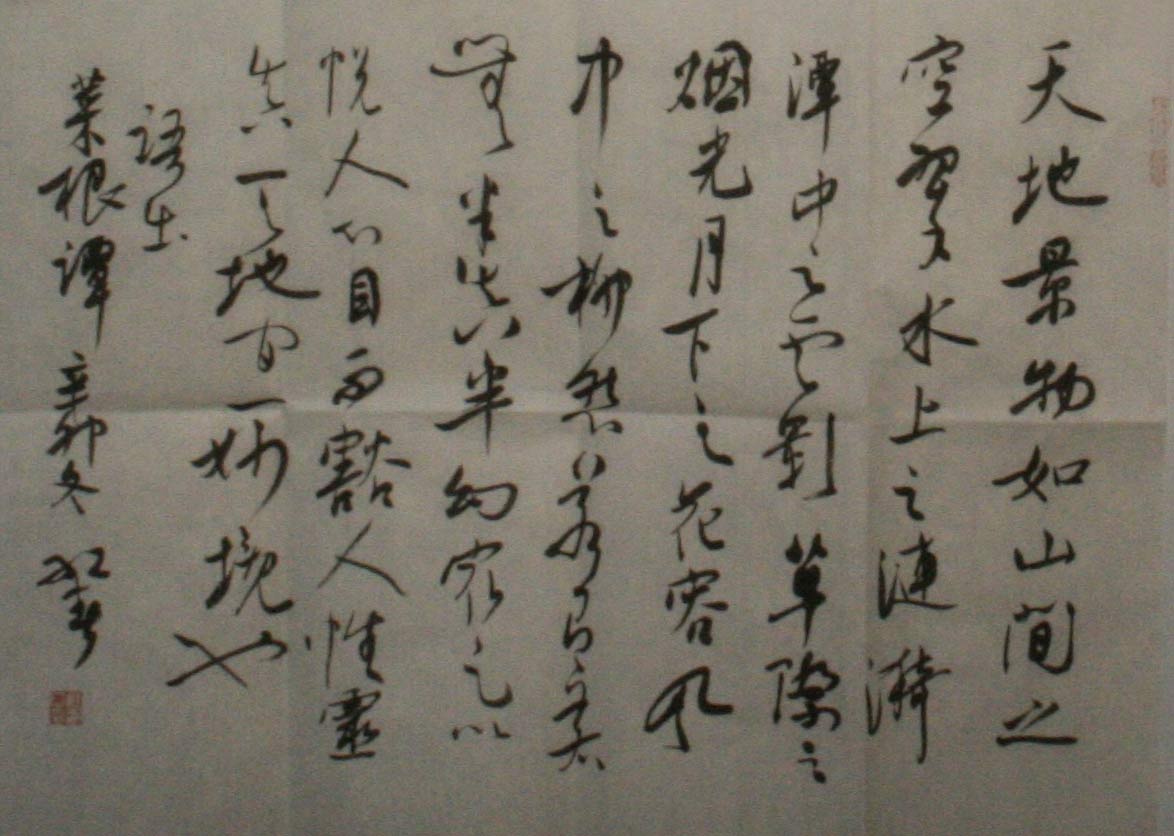 天地景物如山間之
空翠水上之漣漪
潭中之云影草際之
烟光月下之花容风
中之柳態若有若
無半真半幻最足以
悦人心目而豁人性靈
真天地间一妙境也
語出
菜根譚 辛卯冬